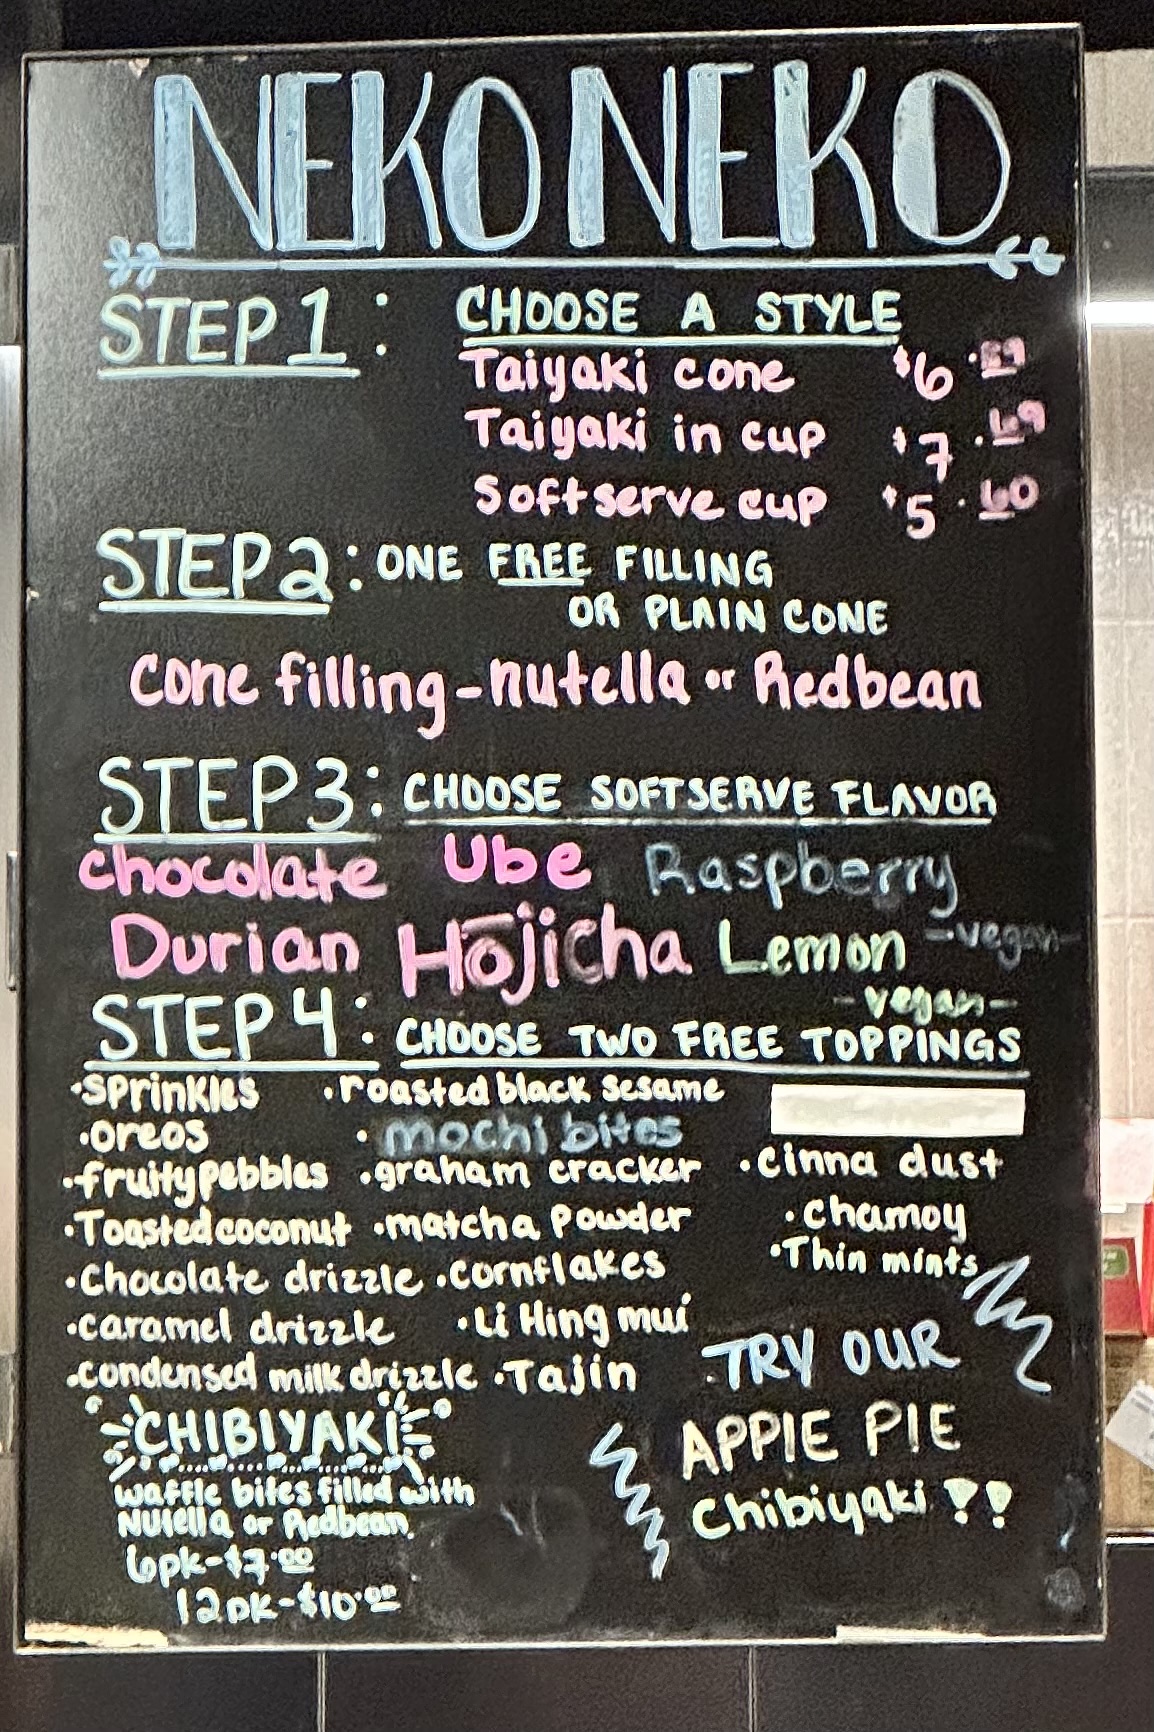 NEKO NEKO
STEP 1: CHOOSE A STYLE
Taiyaki cone $6.89
Taiyaki in cup $7.69
Softserve cup $5.60
STEP 2: ONE FREE FILLING
OR PLAIN CONE
Cone filling - nutella or Redbean
STEP 3: CHOOSE SOFTSERVE FLAVOR
chocolate Ube Raspberry
-vegan-
Durian Hōjicha Lemon
-vegan-
STEP 4: CHOOSE TWO FREE TOPPINGS
•Sprinkles •roasted black sesame
•oreos •mochi bites
•fruity pebbles •graham cracker •cinna dust
•Toasted coconut •matcha powder •chamoy
•Chocolate drizzle •cornflakes •Thin mints
•caramel drizzle •Li Hing mui
•condensed milk drizzle •Tajin
TRY OUR
APPIE PIE
Chibiyaki !!
CHIBIYAKI
waffle bites filled with
Nutella or Redbean.
6pk-$7.00
12pk-$10.00